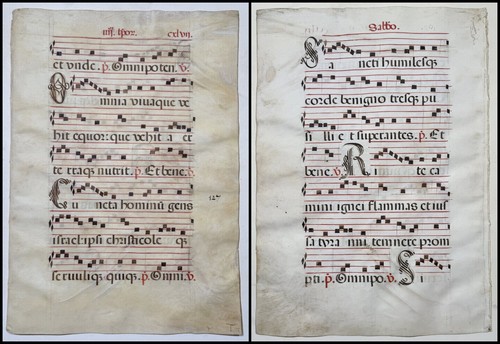 iiij. tpor. cxlvij.
et vnde. p. Omnipoten. v.
Omnia viuaque ve
hit equor: que vehit a er
te rraqs nutrit. p. Et bene. v.
Cu ncta hominū gens
israel: ipsi christicole qs
se ruuliqs quiqs. p. Omni. v.
Sabbo.
Sa ncti humilesqs
corde benigno tresqs pu
si lli e t superantes. p. Et
bene. v. Ri te ca
mini ignei flammas et iuss
sa tyra nni temnere prom
pti. p. Omnipo. v. Si